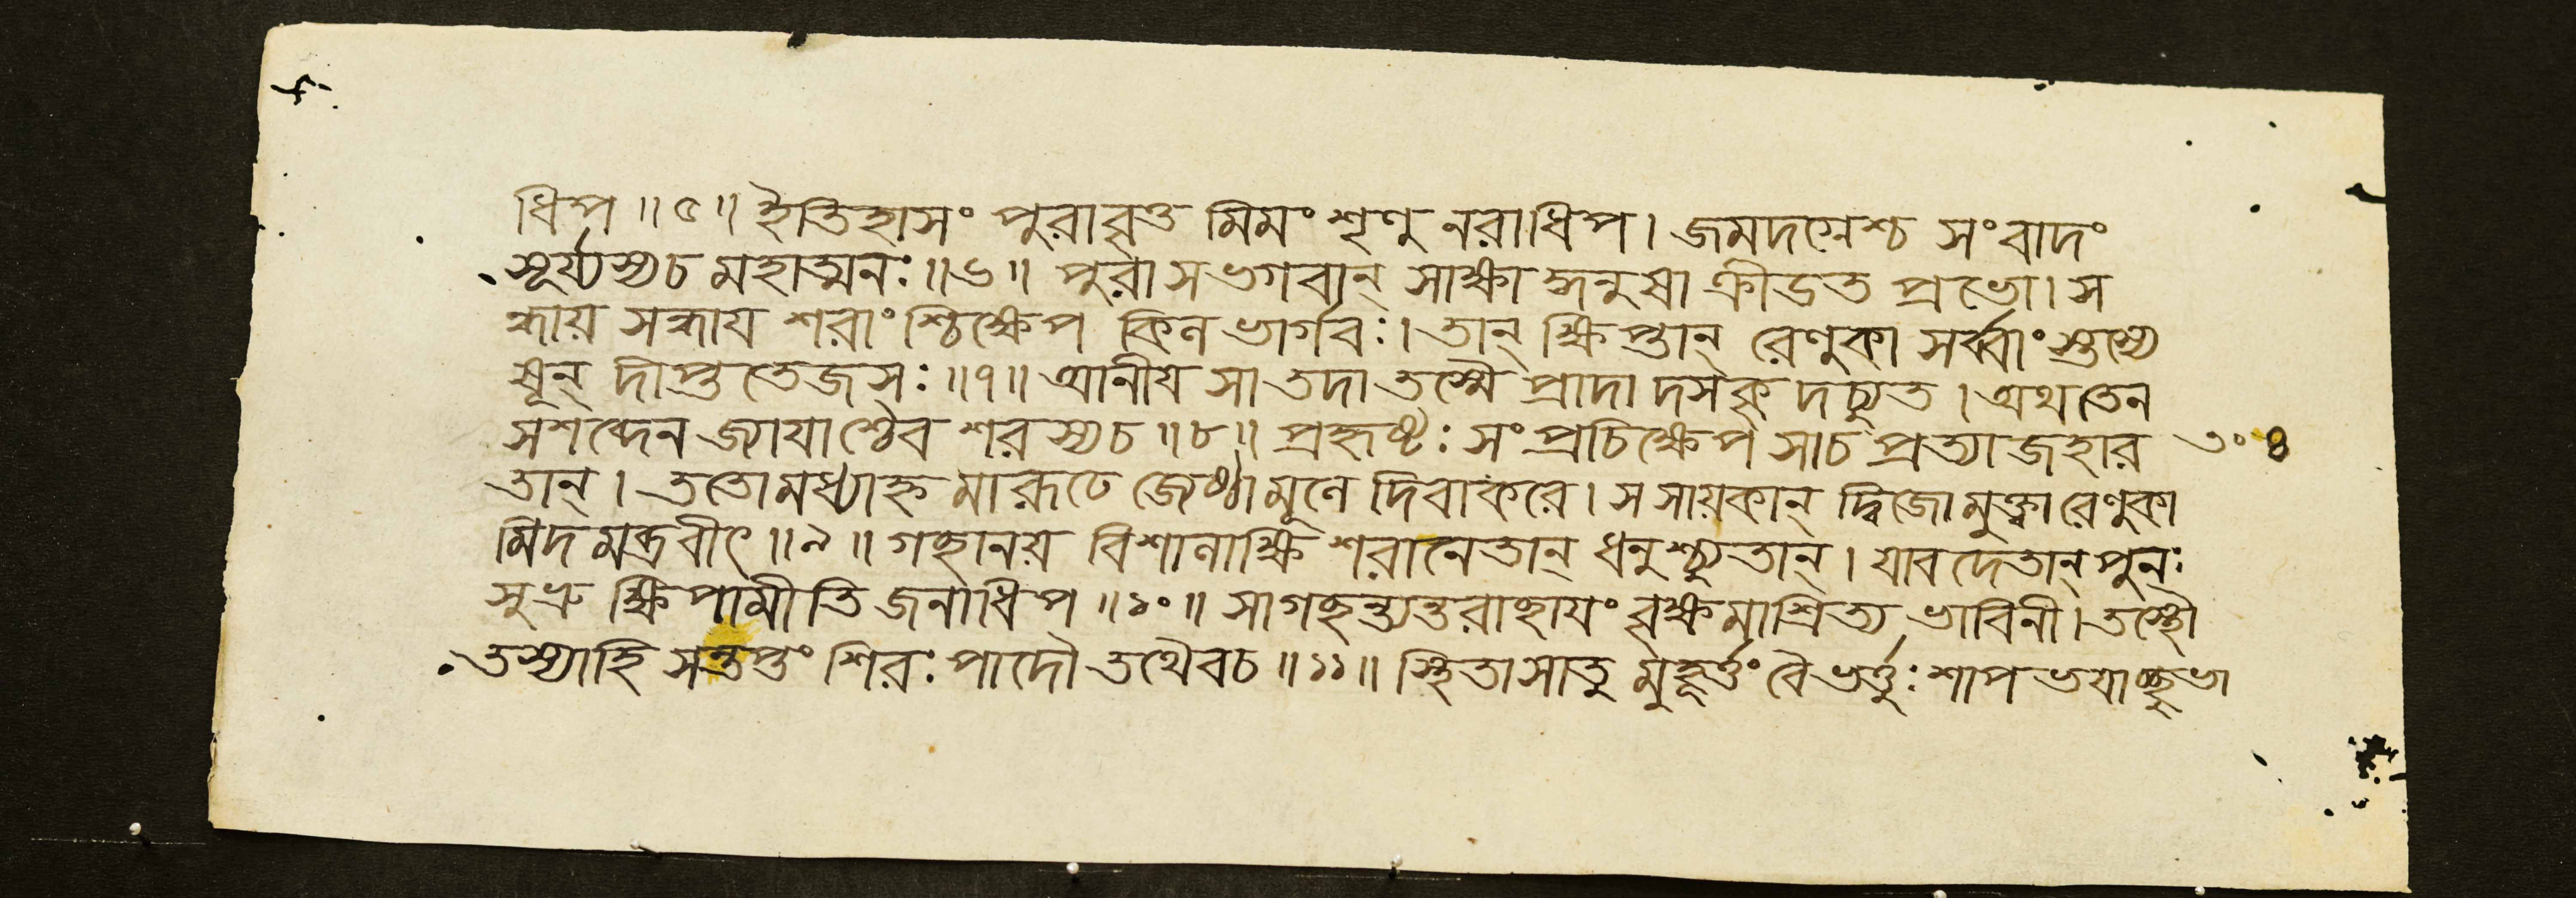 ধিপ ॥ ৫ ॥ ইতিহাসং পুরাবৃত্ত মিমং শৃণু নরাধিপ । জমদগ্নেশ্চ সংবাদং
সূর্য্যস্য চ মহাত্মনঃ ॥ ৬ ॥ পুরা স ভগবান্ সাক্ষা দ্ধনুষা ক্রীডত প্রভো । স
ন্ধায় সন্ধায শরাং শ্চিক্ষেপ কিন ভার্গবঃ । তান্ ক্ষিপ্তান্ রেণুকা সর্ব্বাং স্তস্যে
ষূন্ দীপ্ত তেজসঃ ॥ ৭ ॥ আনীয সা তদা তস্মৈ প্রাদা দসকৃ দচ্যুত । অথ তেন
স শব্দেন জ্যাযাশ্চৈব শরস্য চ ॥ ৮ ॥ প্রহৃষ্টঃ সং প্রচিক্ষেপ সা চ প্রত্যা জহার
তান্ । ততো মধ্যাহ্ন মারূঢে জ্যেষ্ঠামূনে দিবাকরে । স সায়কান্ দ্বিজো মুক্ত্বা রেণুকা
মিদ মব্রবীৎ ॥ ৯ ॥ গচ্ছানয় বিশানাক্ষি শরানেতান্ ধনুশ্চ্যুতান্ । যাব দেতান্ পুনঃ
সুভ্রু ক্ষিপামীতি জনাধিপ ॥ ১০ ॥ সা গচ্ছন্ত্যন্তরাচ্ছাযং বৃক্ষমাশ্রিত্য ভাবিনী । তস্থৌ
তস্যা হি সন্তপ্তং শিরঃ পাদৌ তথৈব চ ॥ ১১ ॥ স্থিতা সা তু মুহূর্ত্তং বৈ ভর্ত্তুঃ শাপ ভযাচ্ছুভা